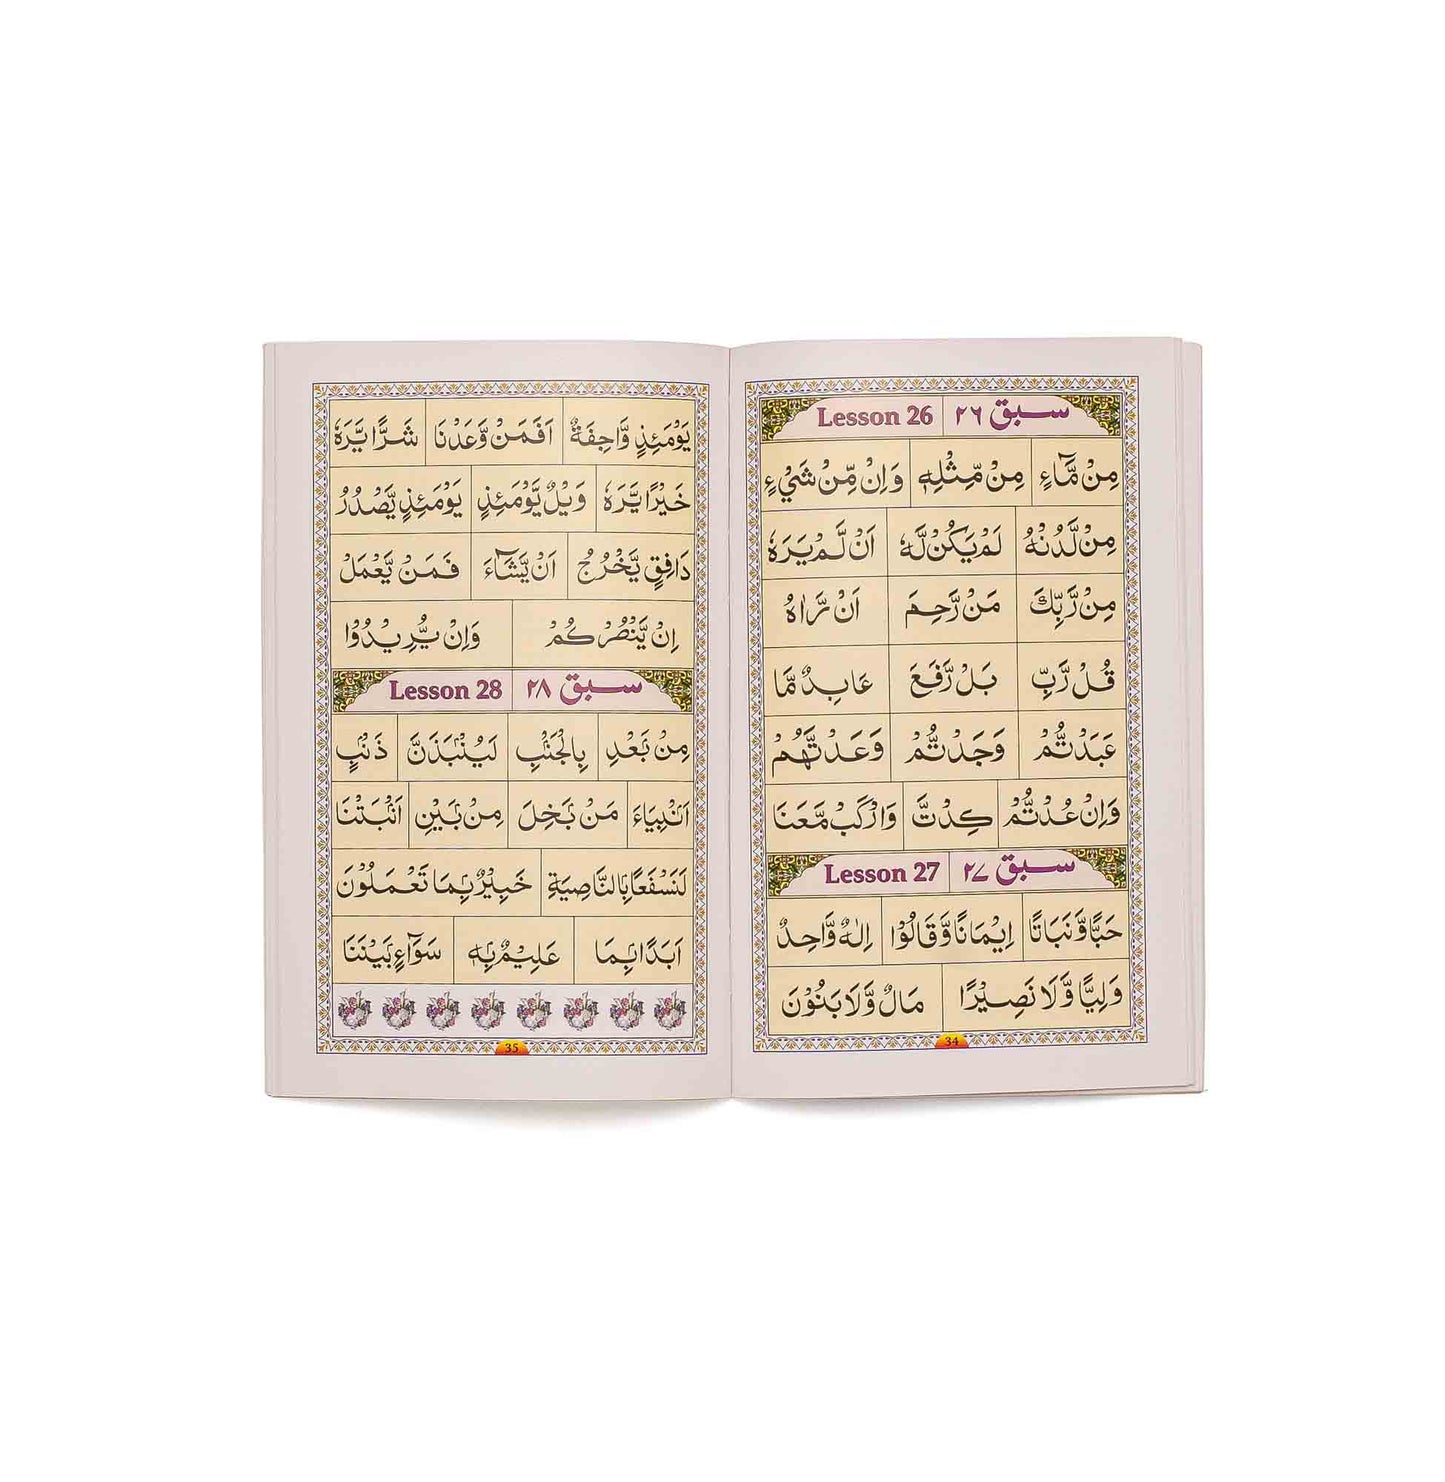 سبق ٢٦ Lesson 26
مِنْ مَّآءٍ مِنْ مِّثْلِهٖ وَاِنْ مِّنْ شَيْءٍ
مِنْ لَّدُنْهُ لَمْ يَكُنْ لَّهٗ اَنْ لَّمْ يَرَهٗ
مِنْ رَّبِّكَ مَنْ رَّحِمَ اَنْ رَّاٰهُ
قُلْ رَّبِّ بَلْ رَّفَعَ عَابِدٌ مَّا
عَبَدْتُّمْ وَجَدْتُّمْ وَعَدْتَّهُمْ
وَاِنْ عُدْتُّمْ كِدْتَّ وَارْكَبْ مَّعَنَا
سبق ٢٧ Lesson 27
حَبًّا وَّنَبَاتًا اِيْمَانًا وَّقَالُوْا اِلٰهٌ وَّاحِدٌ
وَلِيًّا وَّلَا نَصِيْرًا مَالٌ وَّلَا بَنُوْنَ
34
يَوْمَئِذٍ وَّاجِفَةٌ اَفَمَنْ وَّعَدْنَا شَرًّا يَّرَهٗ
خَيْرًا يَّرَهٗ وَيْلٌ يَّوْمَئِذٍ يَوْمَئِذٍ يَّصْدُرُ
دَافِقٍ يَّخْرُجُ اَنْ يَّشَآءَ فَمَنْ يَّعْمَلْ
اِنْ يَّنْصُرْكُمْ وَاِنْ يُّرِيْدُوْا
سبق ٢٨ Lesson 28
مِنْۢ بَعْدِ بِالْجَنْۢبِ لَيُنْۢبَذَنَّ ذَنْۢبٍ
اَنْۢبِيَاءَ مَنْۢ بَخِلَ مِنْۢ بَيْنِ اَنْۢبَتْنَا
لَنَسْفَعًاۢ بِالنَّاصِيَةِ خَبِيْرٌۢ بِمَا تَعْمَلُوْنَ
اَبَدًاۢ بِمَا عَلِيْمٌۢ بِهٖ سَوَآءٍۢ بَيْنَنَا
35